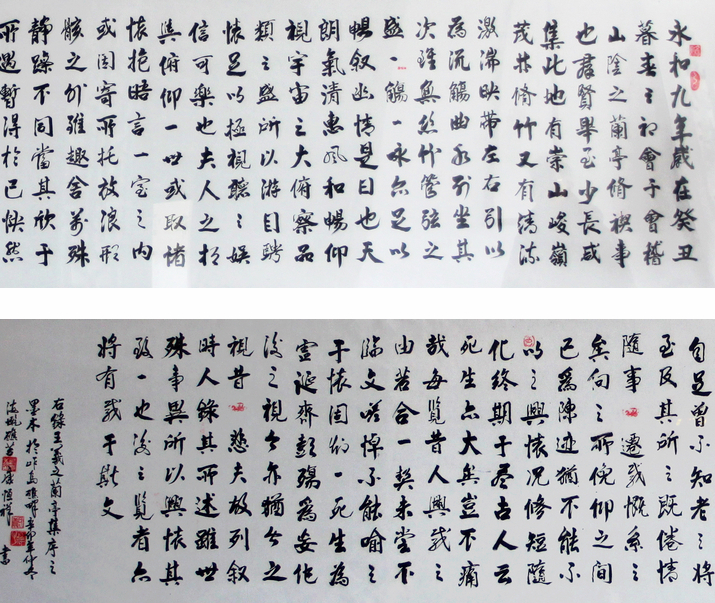 永和九年歲在癸丑
暮春之初會于會稽
山陰之蘭亭脩禊事
也羣賢畢至少長咸
集此地有崇山峻嶺
茂林脩竹又有清流
激湍映帶左右引以
為流觴曲水列坐其
次雖無絲竹管弦之
盛一觴一詠亦足以
暢叙幽情是日也天
朗氣清惠風和暢仰
視宇宙之大俯察品
類之盛所以游目騁
懷足以極視聽之娛
信可樂也夫人之相
與俯仰一世或取諸
懷抱晤言一室之內
或因寄所托放浪形
骸之外雖趣舍萬殊
靜躁不同當其欣于
所遇暫得於己快然
自足曾不知老之將
至及其所之既倦情
隨事遷感慨係之
矣向之所俛仰之間
已為陳迹猶不能不
以之興懷况修短隨
化終期于盡古人云
死生亦大矣豈不痛
哉每覽昔人興感之
由若合一契未嘗不
臨文嗟悼不能喻之
于懷固知一死生為
虛誕齊彭殤為妄作
後之視今亦猶今之
視昔悲夫故列叙
時人錄其所述雖世
殊事異所以興懷其
致一也後之覽者亦
將有感于斯文
右錄王羲之蘭亭集序之
墨本於辛卯年仲冬
恒祥書